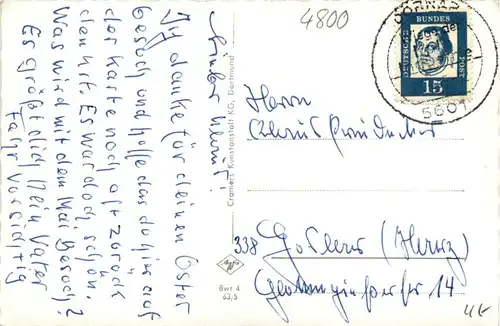 4800
Lieber Klaus!
Ich danke für deinen Oster
besuch und hoffe das du hier auf
der Karte noch oft zurück
denkst. Es war doch schön.
Was wird mit dem Mai Besuch?
Es größt dich dein Vater
Fahr vorsichtig
Cramers Kunstanstalt KG, Dortmund
Bwr 4
63,5
DEUTSCHE BUNDESPOST
15
5601
Herrn
Klaus
338 Goslar (Harz)
14